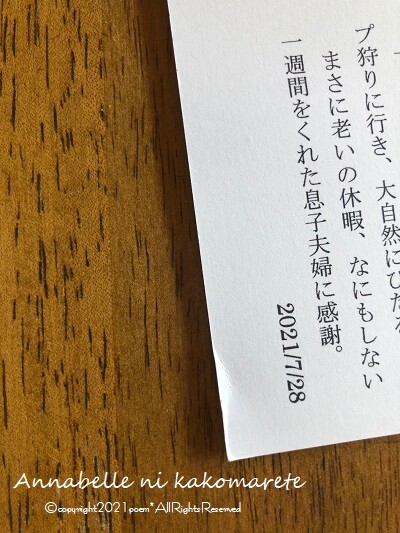 プ狩りに行き、大自然にひたる
まさに老いの休暇、なにもしない
一週間をくれた息子夫婦に感謝。
2021/7/28
Annabelle ni kakomarete
©copyright2021poem*AllRightsReserved